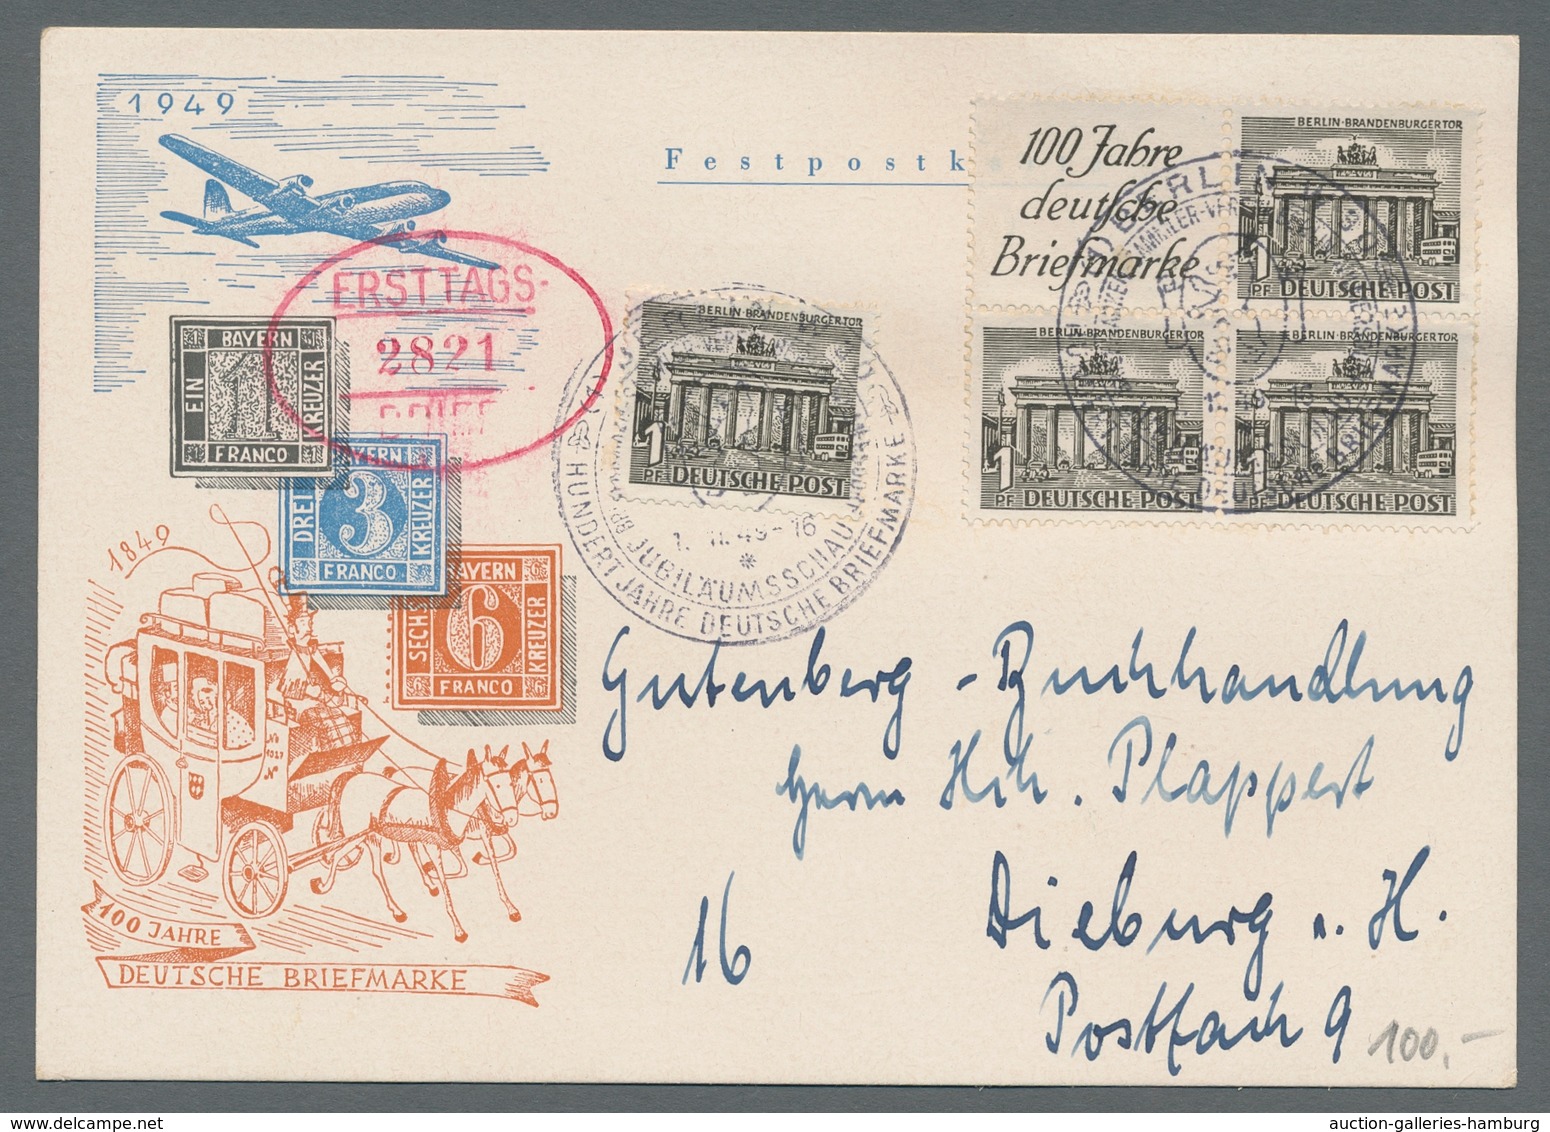 1949
Festpostk
100 Jahre
deutsche
Briefmarke
BERLIN-BRANDENBURGER TOR
1 PF DEUTSCHE POST
BERLIN-BRANDENBURGER TOR
1 PF DEUTSCHE POST
BERLIN-BRANDENBURGER TOR
1 PF DEUTSCHE POST
BERLIN
HUNDERT JAHRE DEUTSCHE BRIEFMARKE
ERSTTAGS-
2821
BRIEF
BERLIN-BRANDENBURGER TOR
1 PF DEUTSCHE POST
JUBILÄUMSSCHAU
HUNDERT JAHRE DEUTSCHE BRIEFMARKE
BAYERN
EIN 1 KREUZER
FRANCO
BAYERN
DREI 3 KREUZER
FRANCO
BAYERN
SECHS 6 KREUZER
FRANCO
1849
100 JAHRE
DEUTSCHE BRIEFMARKE
Gutenberg - Buchhandlung
Herrn Hch. Plappert
16 Dieburg i. H.
Postfach 9
100,-
auction-galleries-hamburg